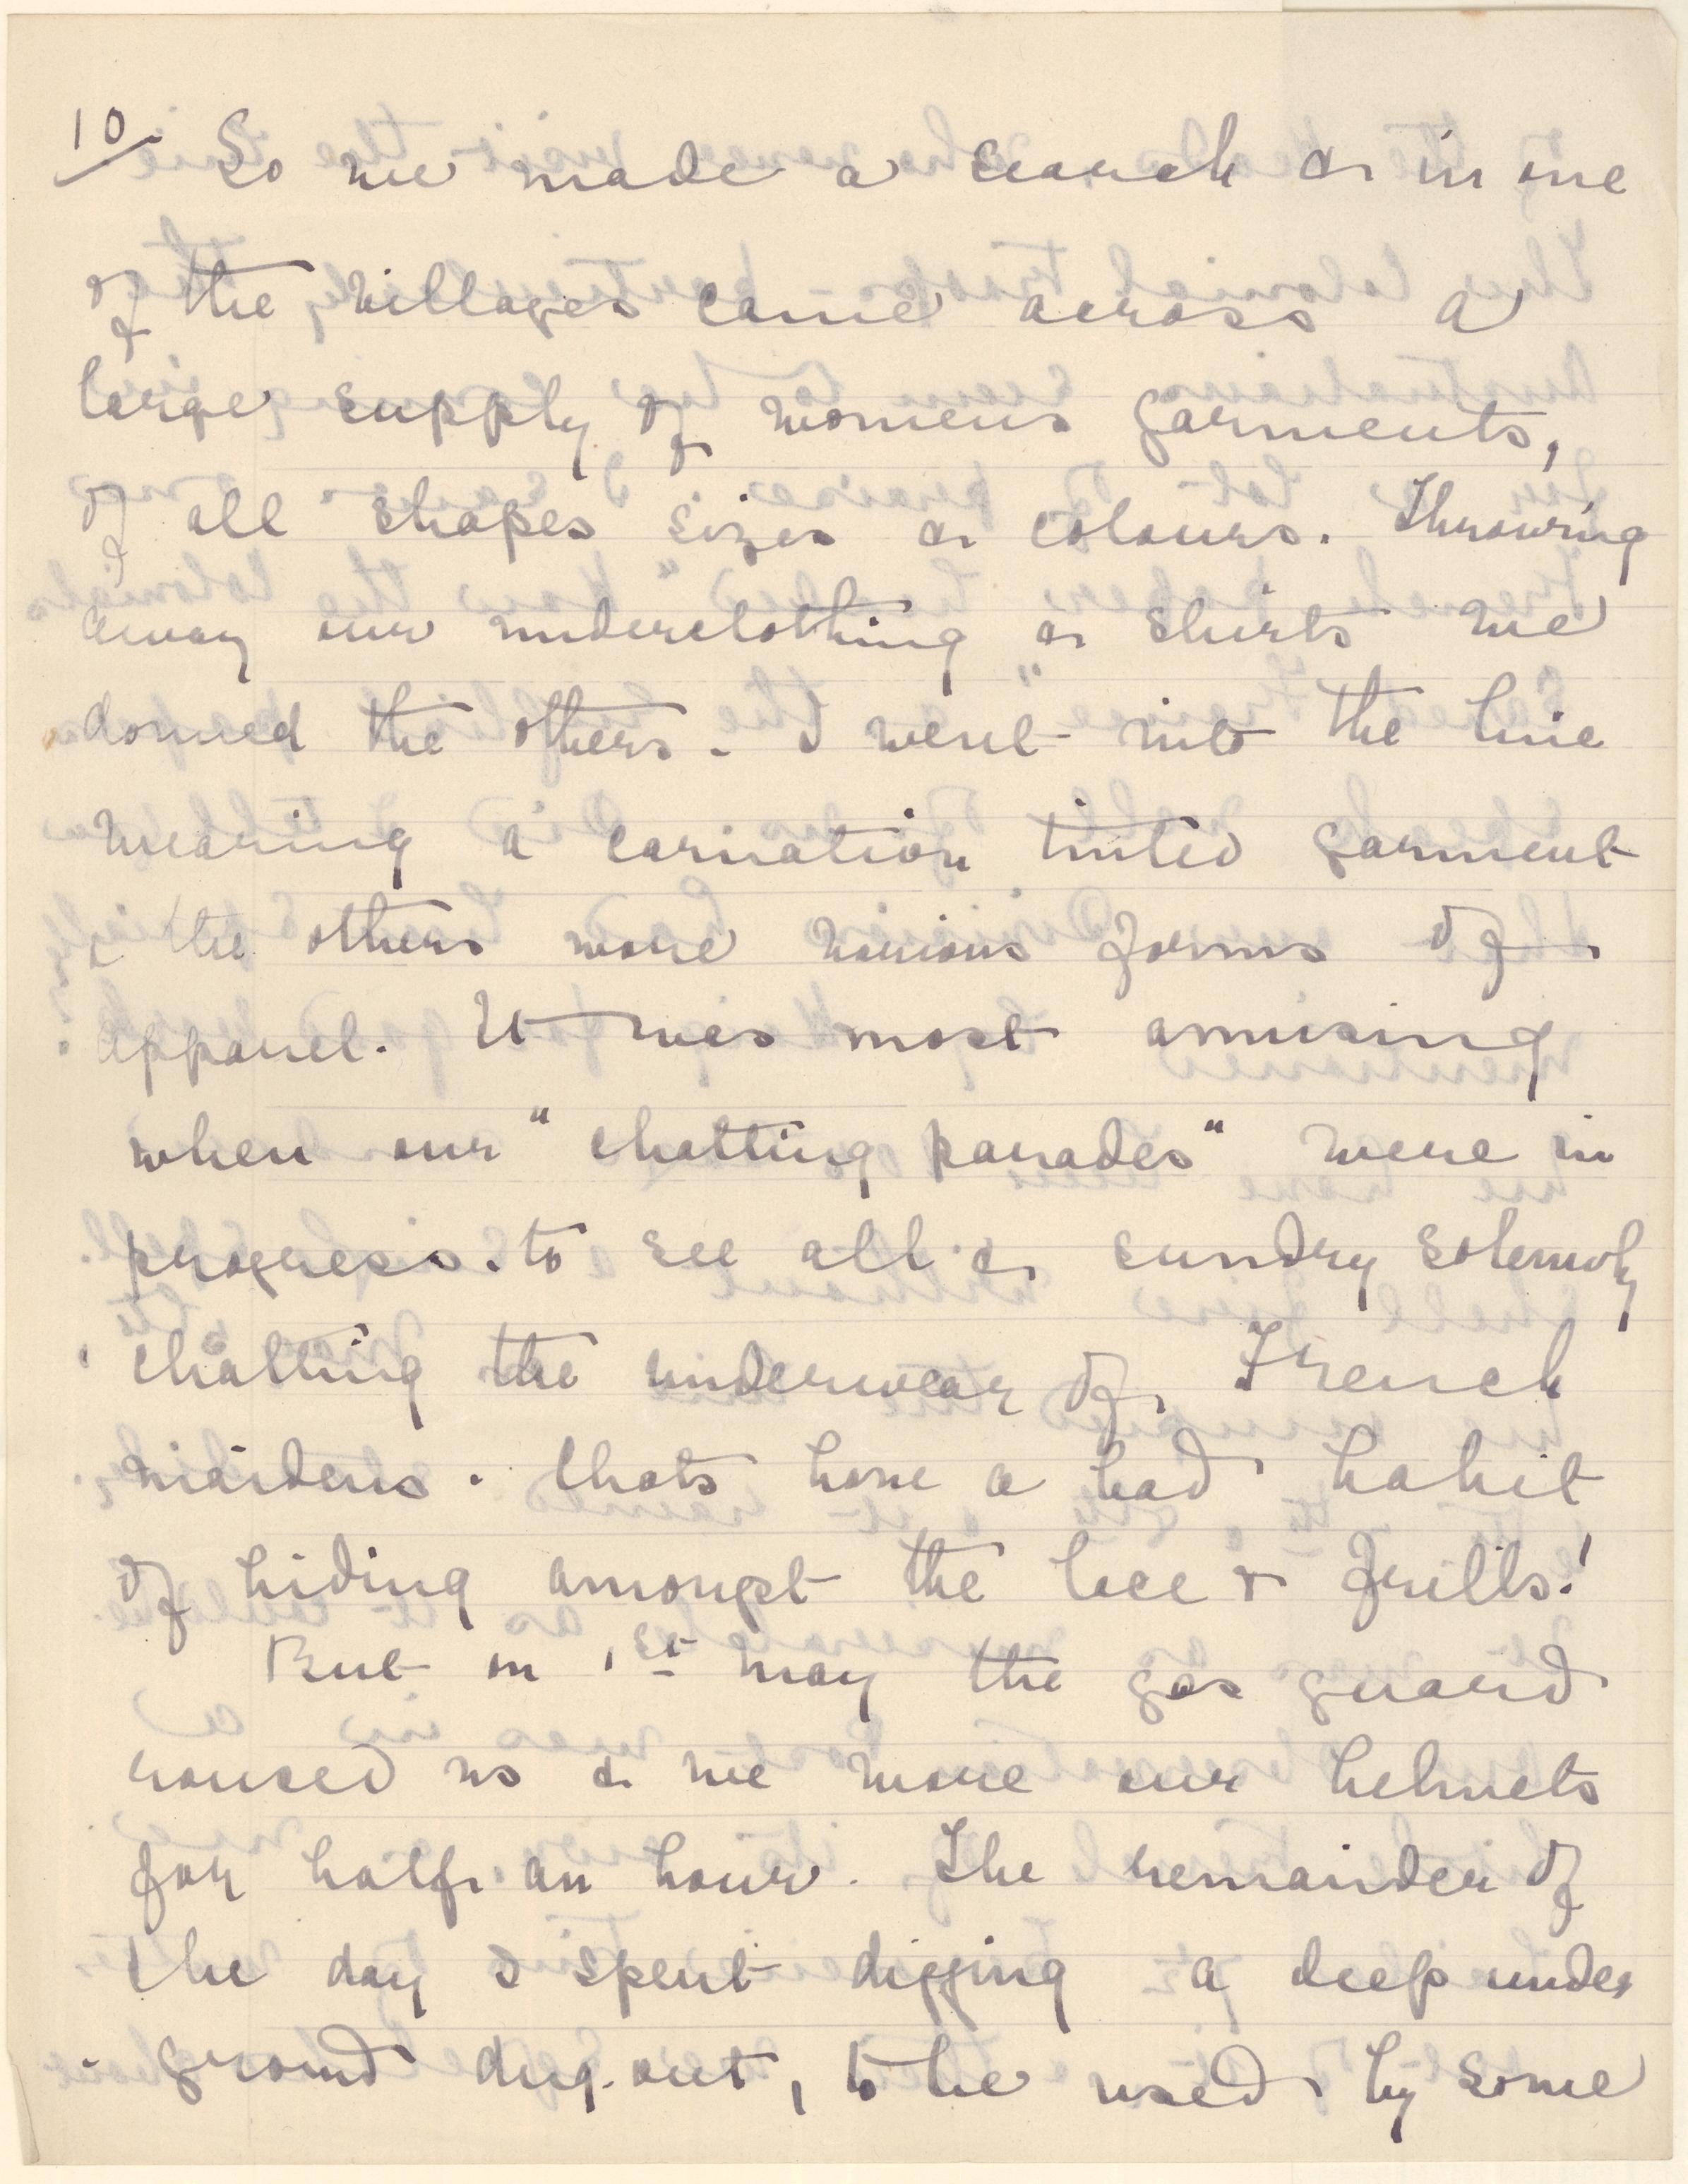 10/ So we made a search & in one
of the villages came across a
large supply of womens garments,
of all shapes sizes & colours. Throwing
away our underclothing & shirts we
donned the others. I went into the line
wearing a carnation tinted garment
& the others wore various forms of
apparel. It was most amusing
when our "chatting parades" were in
progress. to see all & sundry solemnly
chatting the underwear of French
maidens. Chats have a bad habit
of hiding amongst the lace & frills!
But on 1st May the gas guard
roused us & we wore our helmets
for half an hour. The remainder of
the day I spent digging a deep under
- ground dug-out, to be used by some